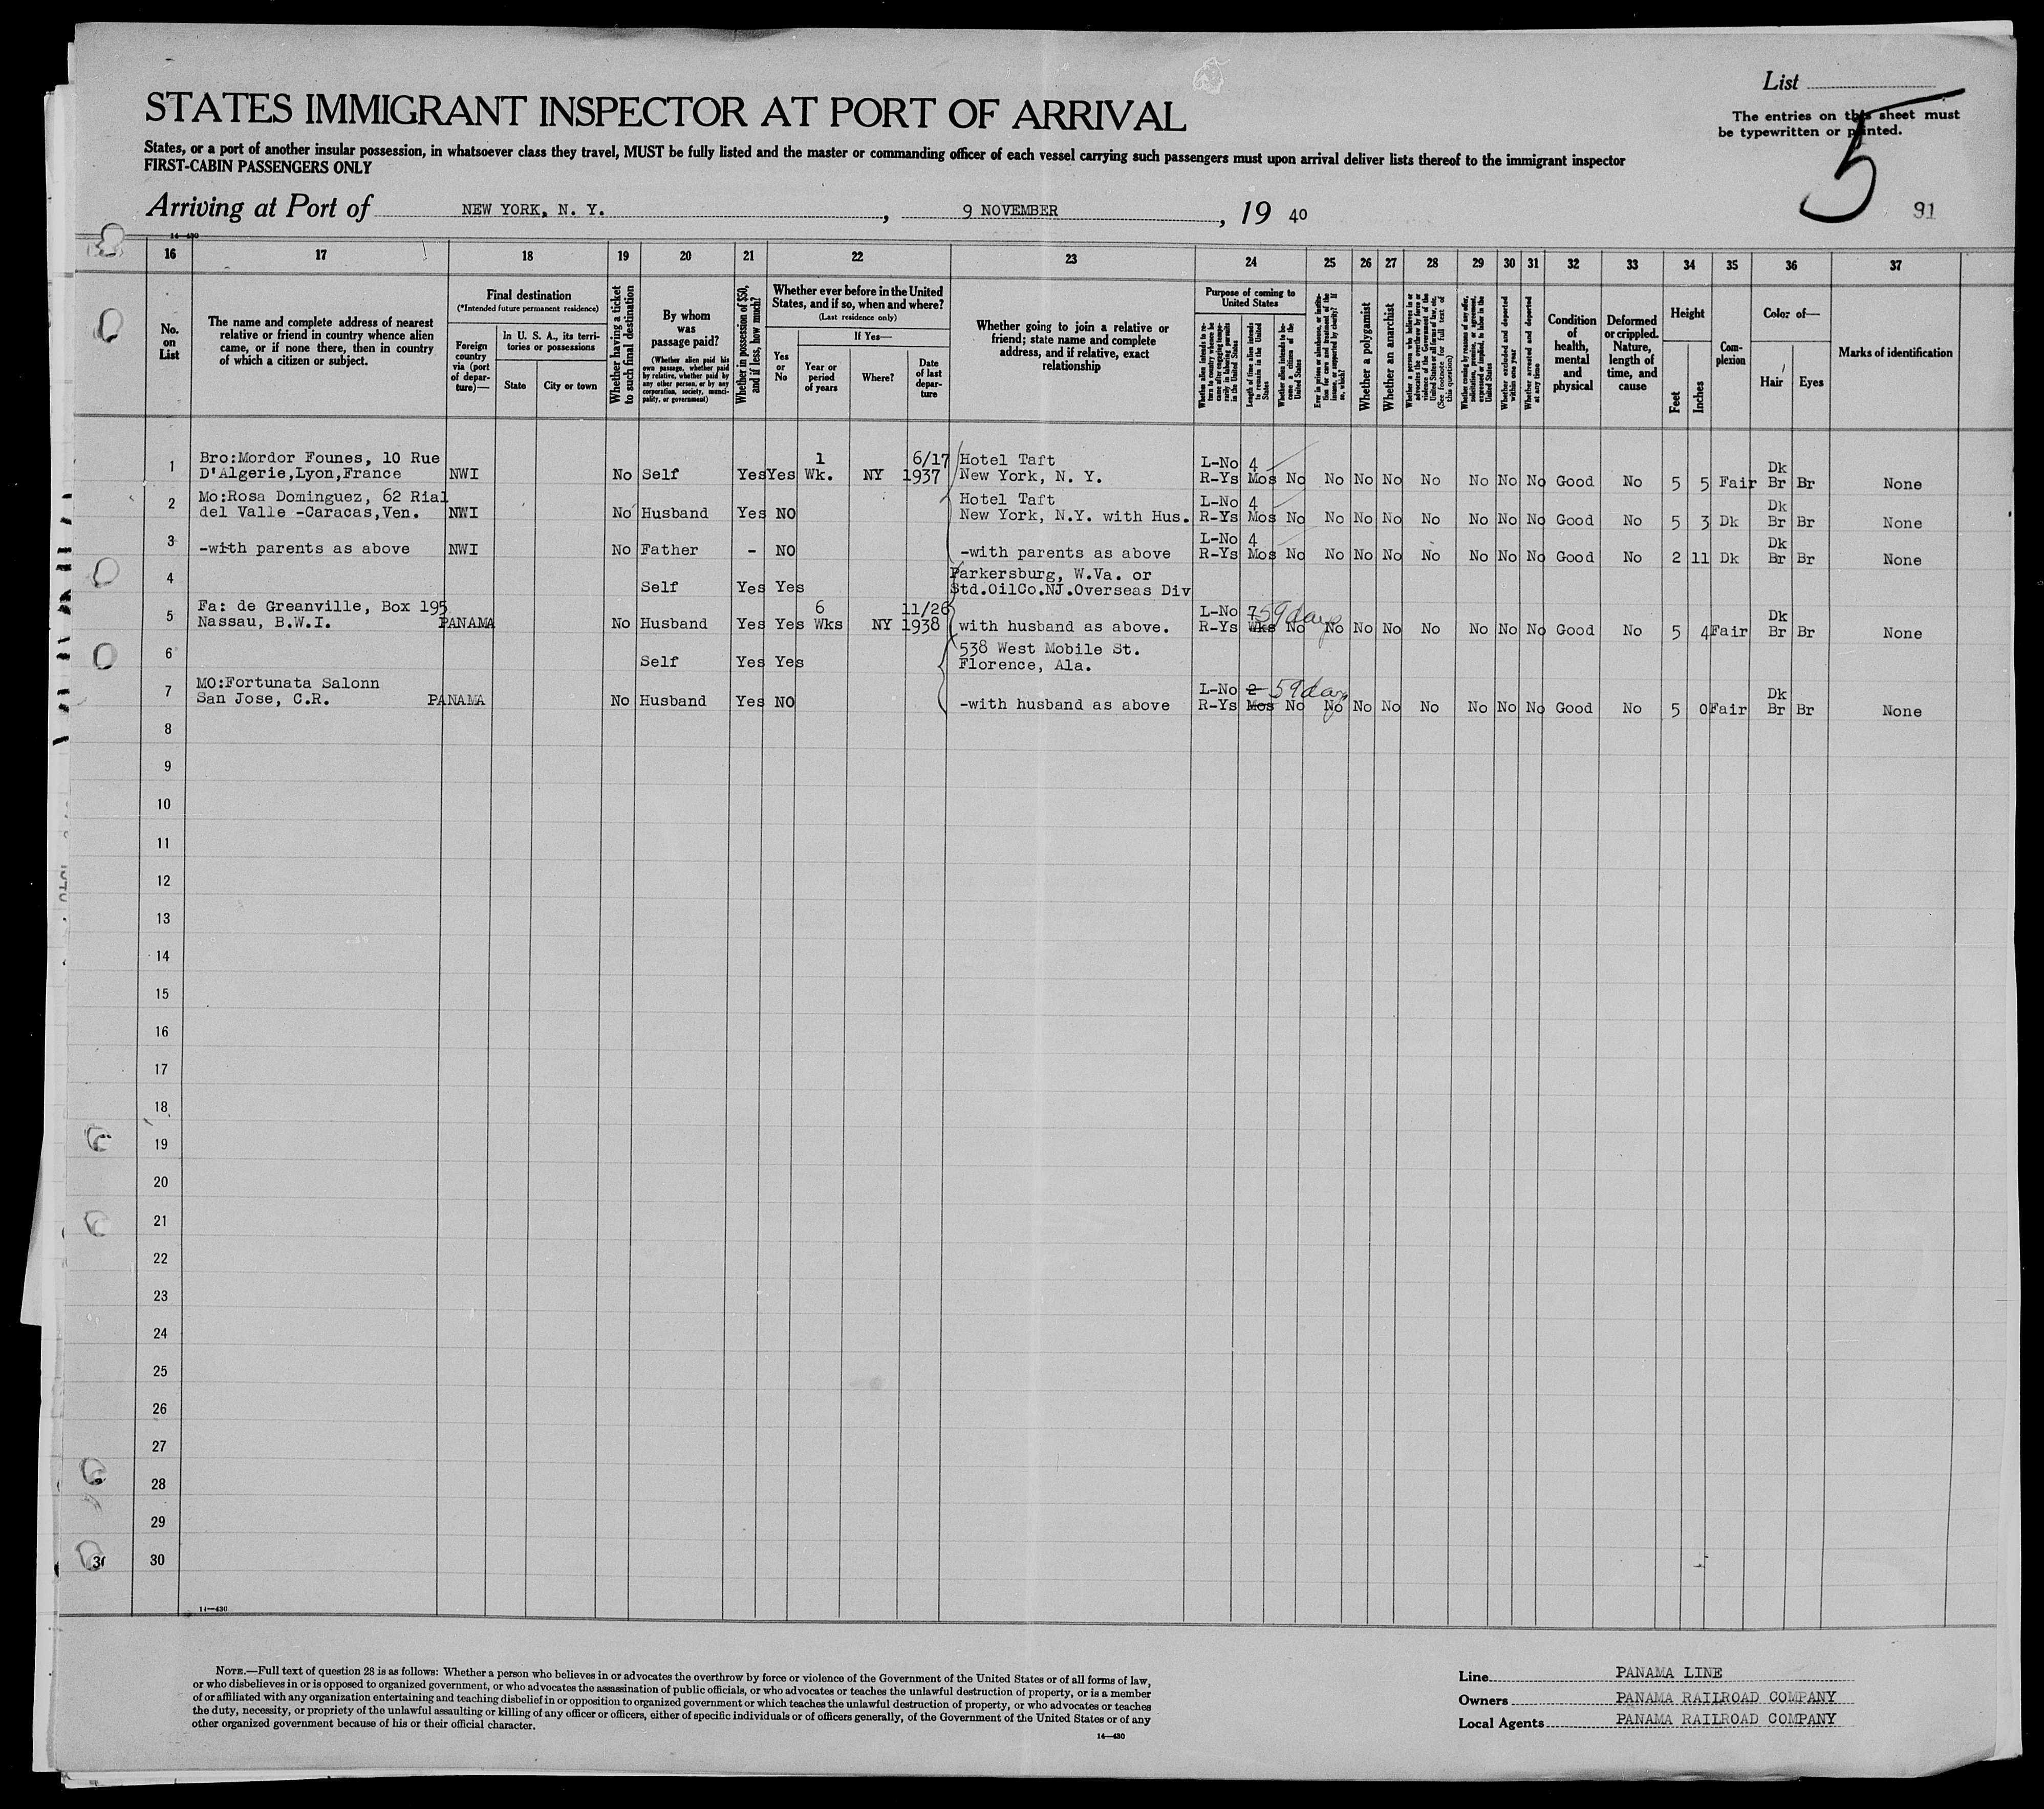 List
The entries on this sheet must
be typewritten or printed.
5
STATES IMMIGRANT INSPECTOR AT PORT OF ARRIVAL
States, or a port of another insular possession, in whatsoever class they travel, MUST be fully listed and the master or commanding officer of each vessel carrying such passengers must upon arrival deliver lists thereof to the immigrant inspector
FIRST-CABIN PASSENGERS ONLY
Arriving at Port of NEW YORK, N. Y. , 9 NOVEMBER , 19 40
91
14-430
16 17 18 19 20 21 22 23 24 25 26 27 28 29 30 31 32 33 34 35 36 37
No. on List
The name and complete address of nearest relative or friend in country whence alien came, or if none there, then in country of which a citizen or subject.
Final destination
(*Intended future permanent residence)
Foreign country via (port of departure)—
In U. S. A., its territories or possessions
State
City or town
Whether having a ticket to such final destination
By whom was passage paid?
(Whether alien paid his own passage, whether paid by relative, whether paid by any other person, or by any corporation, society, municipality, or government)
Whether in possession of $50, and if less, how much?
Whether ever before in the United States, and if so, when and where?
(Last residence only)
Yes or No
If Yes—
Year or period of years
Where?
Date of last departure
Whether going to join a relative or friend; state name and complete address, and if relative, exact relationship
Purpose of coming to United States
Length of time alien intends to remain in the United States
Whether alien intends to become a citizen of the United States
Whether a polygamist
Whether an anarchist
(See footnote for full text of this question)
Whether excluded and deported within one year
Whether arrested and deported at any time
Condition of health, mental and physical
Deformed or crippled. Nature, length of time, and cause
Height
Feet
Inches
Complexion
Color of—
Hair
Eyes
Marks of identification
1 Bro:Mordor Founes, 10 Rue D'Algerie,Lyon,France NWI No Self Yes Yes 1 Wk. NY 6/17 1937 Hotel Taft New York, N. Y. L-No R-Ys 4 Mos No No No No No No No No Good No 5 5 Fair Dk Br Br None
2 Mo:Rosa Dominguez, 62 Rial del Valle -Caracas,Ven. NWI No Husband Yes NO Hotel Taft New York, N.Y. with Hus. L-No R-Ys 4 Mos No No No No No No No No Good No 5 3 Dk Dk Br Br None
3 -with parents as above NWI No Father - NO -with parents as above L-No R-Ys 4 Mos No No No No No No No No Good No 2 11 Dk Dk Br Br None
4 Self Yes Yes Parkersburg, W.Va. or Std.OilCo.NJ.Overseas Div
5 Fa: de Greanville, Box 195 Nassau, B.W.I. PANAMA No Husband Yes Yes 6 Wks NY 11/26 1938 with husband as above. L-No R-Ys 7 Wks 59 days No No No No No No No No Good No 5 4 Fair Dk Br Br None
6 Self Yes Yes 538 West Mobile St. Florence, Ala.
7 MO:Fortunata Salonn San Jose, C.R. PANAMA No Husband Yes NO -with husband as above L-No R-Ys 2 Mos 59 days No No No No No No No No Good No 5 0 Fair Dk Br Br None
8
9
10
11
12
13
14
15
16
17
18
19
20
21
22
23
24
25
26
27
28
29
30
14—430
NOTE.—Full text of question 28 is as follows: Whether a person who believes in or advocates the overthrow by force or violence of the Government of the United States or of all forms of law,
or who disbelieves in or is opposed to organized government, or who advocates the assassination of public officials, or who advocates or teaches the unlawful destruction of property, or is a member
of or affiliated with any organization entertaining and teaching disbelief in or opposition to organized government or which teaches the unlawful destruction of property, or who advocates or teaches
the duty, necessity, or propriety of the unlawful assaulting or killing of any officer or officers, either of specific individuals or of officers generally, of the Government of the United States or of any
other organized government because of his or their official character.
14—430
Line PANAMA LINE
Owners PANAMA RAILROAD COMPANY
Local Agents PANAMA RAILROAD COMPANY